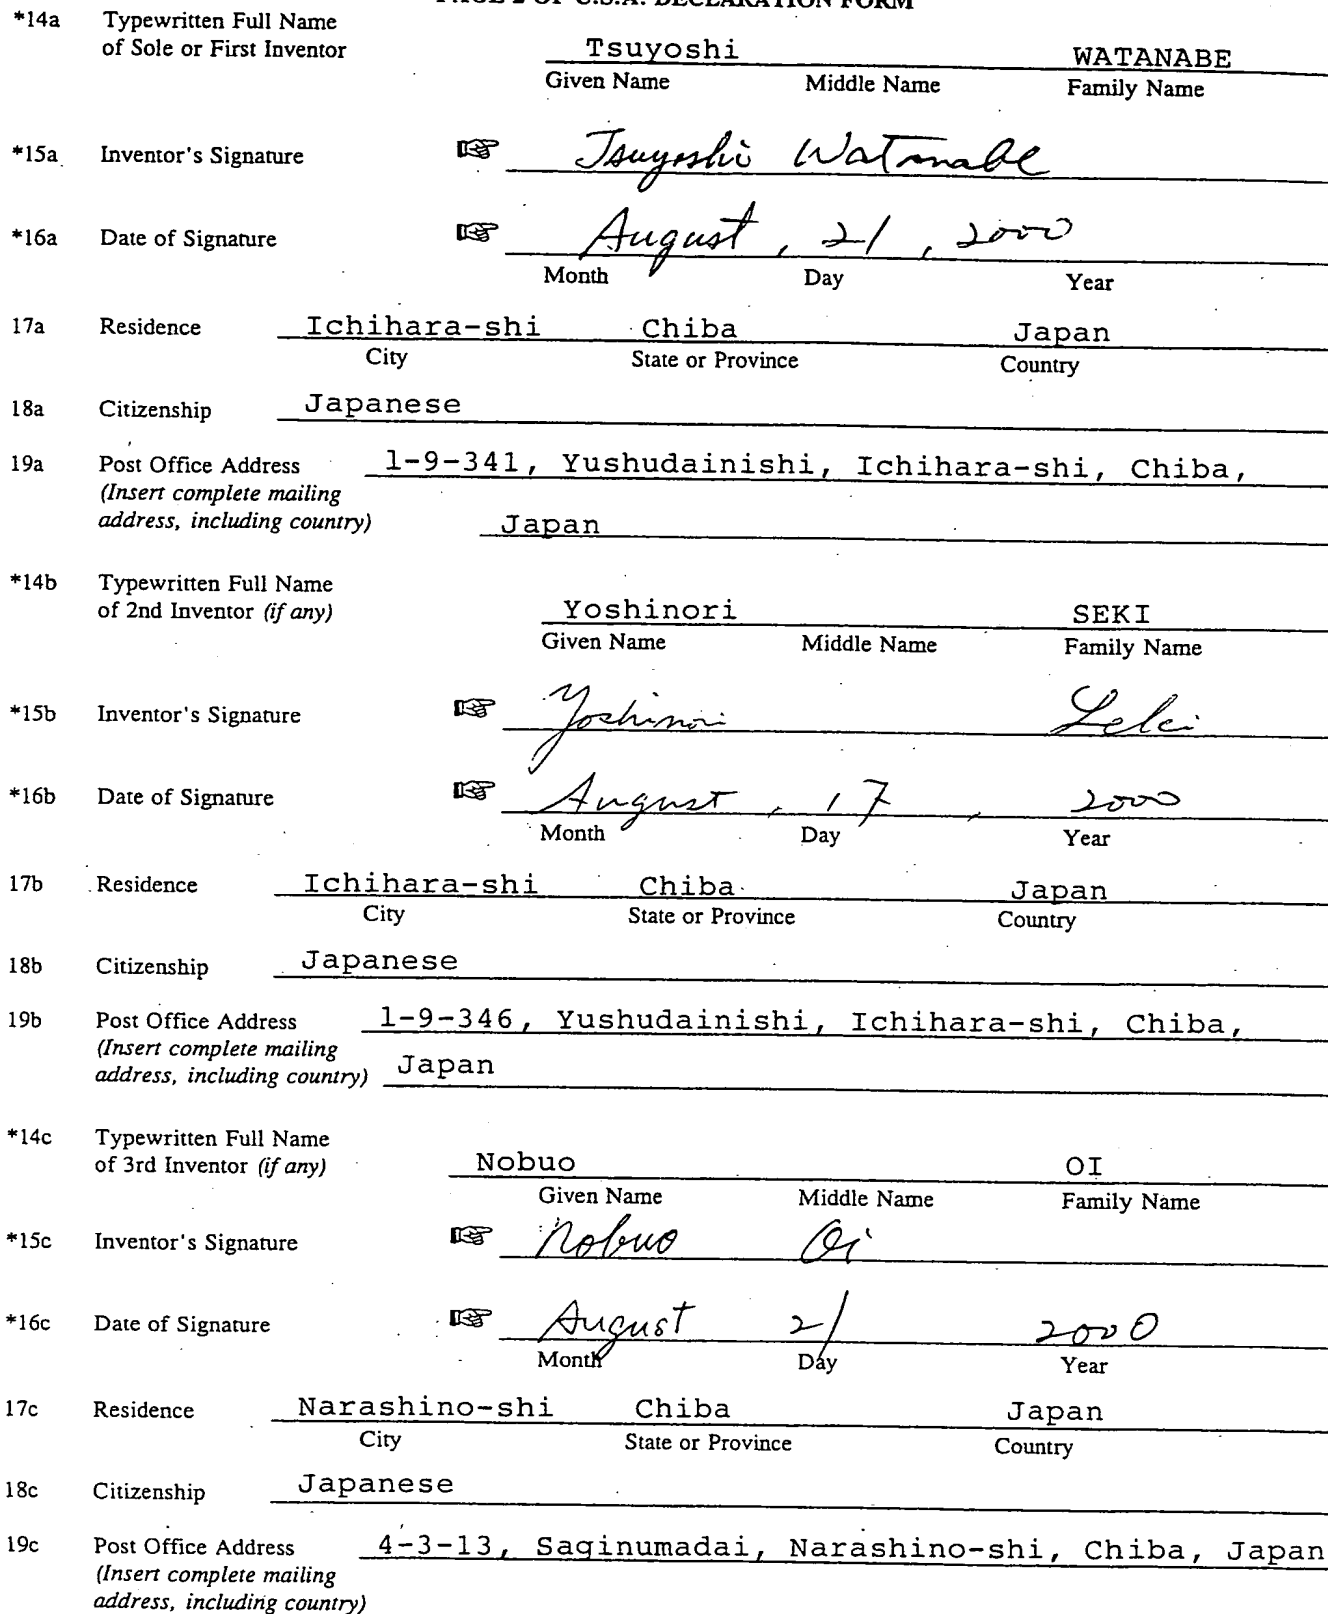 PAGE 2 OF U.S.A. DECLARATION FORM
*14a Typewritten Full Name
of Sole or First Inventor Tsuyoshi WATANABE
Given Name Middle Name Family Name
*15a Inventor's Signature ☞ Tsuyoshi Watanabe
*16a Date of Signature ☞ August, 21, 2000
Month Day Year
17a Residence Ichihara-shi Chiba Japan
City State or Province Country
18a Citizenship Japanese
19a Post Office Address 1-9-341, Yushudainishi, Ichihara-shi, Chiba,
(Insert complete mailing
address, including country) Japan
*14b Typewritten Full Name
of 2nd Inventor (if any) Yoshinori SEKI
Given Name Middle Name Family Name
*15b Inventor's Signature ☞ Yoshinori Seki
*16b Date of Signature ☞ August, 17, 2000
Month Day Year
17b Residence Ichihara-shi Chiba Japan
City State or Province Country
18b Citizenship Japanese
19b Post Office Address 1-9-346, Yushudainishi, Ichihara-shi, Chiba,
(Insert complete mailing
address, including country) Japan
*14c Typewritten Full Name
of 3rd Inventor (if any) Nobuo OI
Given Name Middle Name Family Name
*15c Inventor's Signature ☞ Nobuo Oi
*16c Date of Signature ☞ August 21 2000
Month Day Year
17c Residence Narashino-shi Chiba Japan
City State or Province Country
18c Citizenship Japanese
19c Post Office Address 4-3-13, Saginumadai, Narashino-shi, Chiba, Japan
(Insert complete mailing
address, including country)